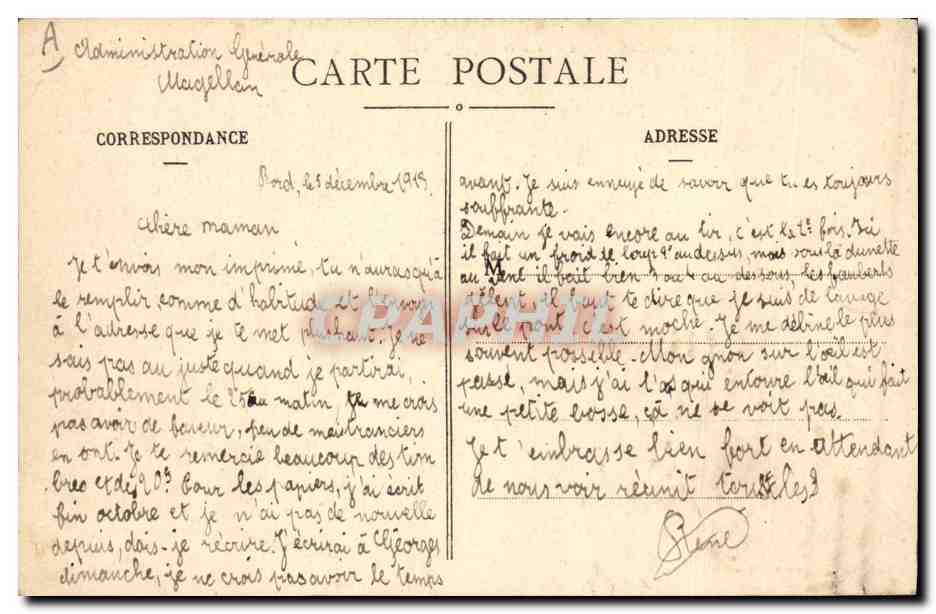 A
Administration Générale
Magellan
CARTE POSTALE
CORRESPONDANCE
ADRESSE
Bord, le 5 décembre 1918
Chère maman
Je t'envois mon imprimé, tu n'auras qu'à
le remplir comme d'habitude et l'envoyer
à l'adresse que je te met plus haut. Je ne
sais pas au juste quand je partirai,
probablement le 25 au matin, je me crois
pas avoir de faveur, peu de
en ont. Je te remercie beaucoup des tim
bres et des 20f Pour les papiers, j'ai écrit
fin octobre et je n'ai pas de nouvelle
depuis, dois-je récrire. J'écrirai à Georges
dimanche, je ne crois pas avoir le temps
avant. Je suis ennuyé de savoir que tu es toujours
souffrante.
Demain je vais encore au tir, c'est la fois. Ici
il fait un froid de loup au dessus, mais sous la dunette
M
au vent il fait bien au dessous, les fauberts
gèlent. Il faut te dire que je suis de lavage
sur le pont, c'est moche. Je me débine le plus
souvent possible. Mon gnon sur l'œil est
passé, mais j'ai l'os qui entoure l'œil qui fait
une petite bosse, çà ne se voit pas.
Je t'embrasse bien fort en attendant
de nous voir réunit tous les 3
René
CPAPHIL